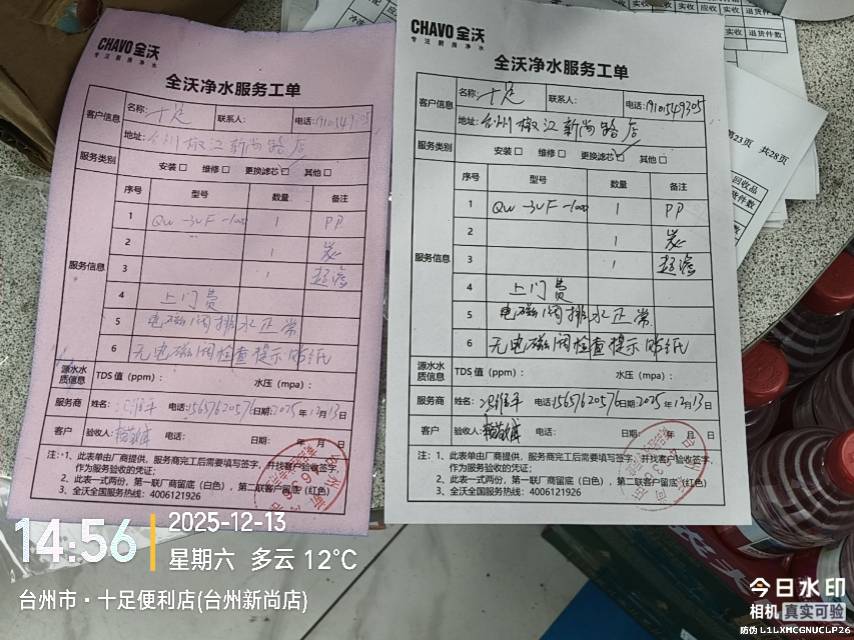 CHAVO 全沃
专注厨房净水
全沃净水服务工单
客户信息
名称: 十足
联系人:
电话: 19101549305
地址: 台州椒江新尚路店
服务类别
安装 维修 更换滤芯 其他
服务信息
序号 型号 数量 备注
1 QW-3UF-100 1 PP
2 1 炭
3 1 超滤
4 上门费
5 电磁阀排水正常
6 无电磁阀检查提示贴纸
源水水质信息
TDS值(ppm): 水压(mpa):
服务商
姓名: 电话: 15657620576 日期: 2025年12月13日
客户
验收人: 电话: 日期: 年 月 日
注: 1、此表单由厂商提供,服务商完工后需要填写签字,并找客户验收签字,
作为服务验收的凭证;
2、此表一式两份,第一联厂商留底(白色),第二联客户留底(红色)
3、全沃全国服务热线: 4006121926
CHAVO 全沃
专注厨房净水
全沃净水服务工单
客户信息
名称: 十足
联系人:
电话: 19101549305
地址: 台州椒江新尚路店
服务类别
安装 维修 更换滤芯 ✓ 其他
服务信息
序号 型号 数量 备注
1 QW-3UF-100 1 PP
2 1 炭
3 1 超滤
4 上门费
5 电磁阀排水正常
6 无电磁阀检查提示贴纸
源水水质信息
TDS值(ppm): 水压(mpa):
服务商
姓名: 电话: 15657620576 日期: 2025年12月13日
客户
验收人: 电话: 日期: 年 月 日
注: 1、此表单由厂商提供,服务商完工后需要填写签字,并找客户验收签字,
作为服务验收的凭证;
2、此表一式两份,第一联厂商留底(白色),第二联客户留底(红色)
3、全沃全国服务热线: 4006121926
实收 应收 实收 退货件数
第23页 共28页
回收品
货件数
14:56
2025-12-13
星期六 多云 12°C
台州市·十足便利店(台州新尚店)
今日水印
相机 真实可验
防伪 L1LXMCGNUCLP26